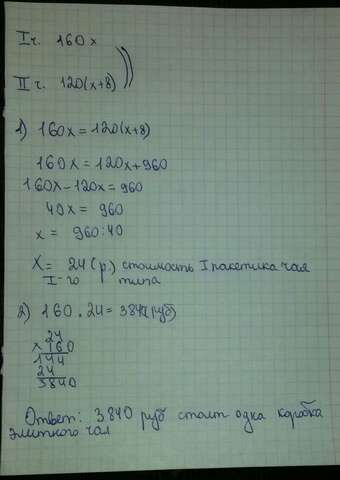 I ч. 160 х
II ч. 120(х+8)
1) 160х = 120(х+8)
160х = 120х + 960
160х - 120х = 960
40х = 960
х = 960:40
Х = 24 (р.) стоимость I пакетика чая
I-го типа
2) 160 . 24 = 3840(руб)
24
х 160
144
24
3840
Ответ: 3840 руб стоит одна коробка
элитного чая